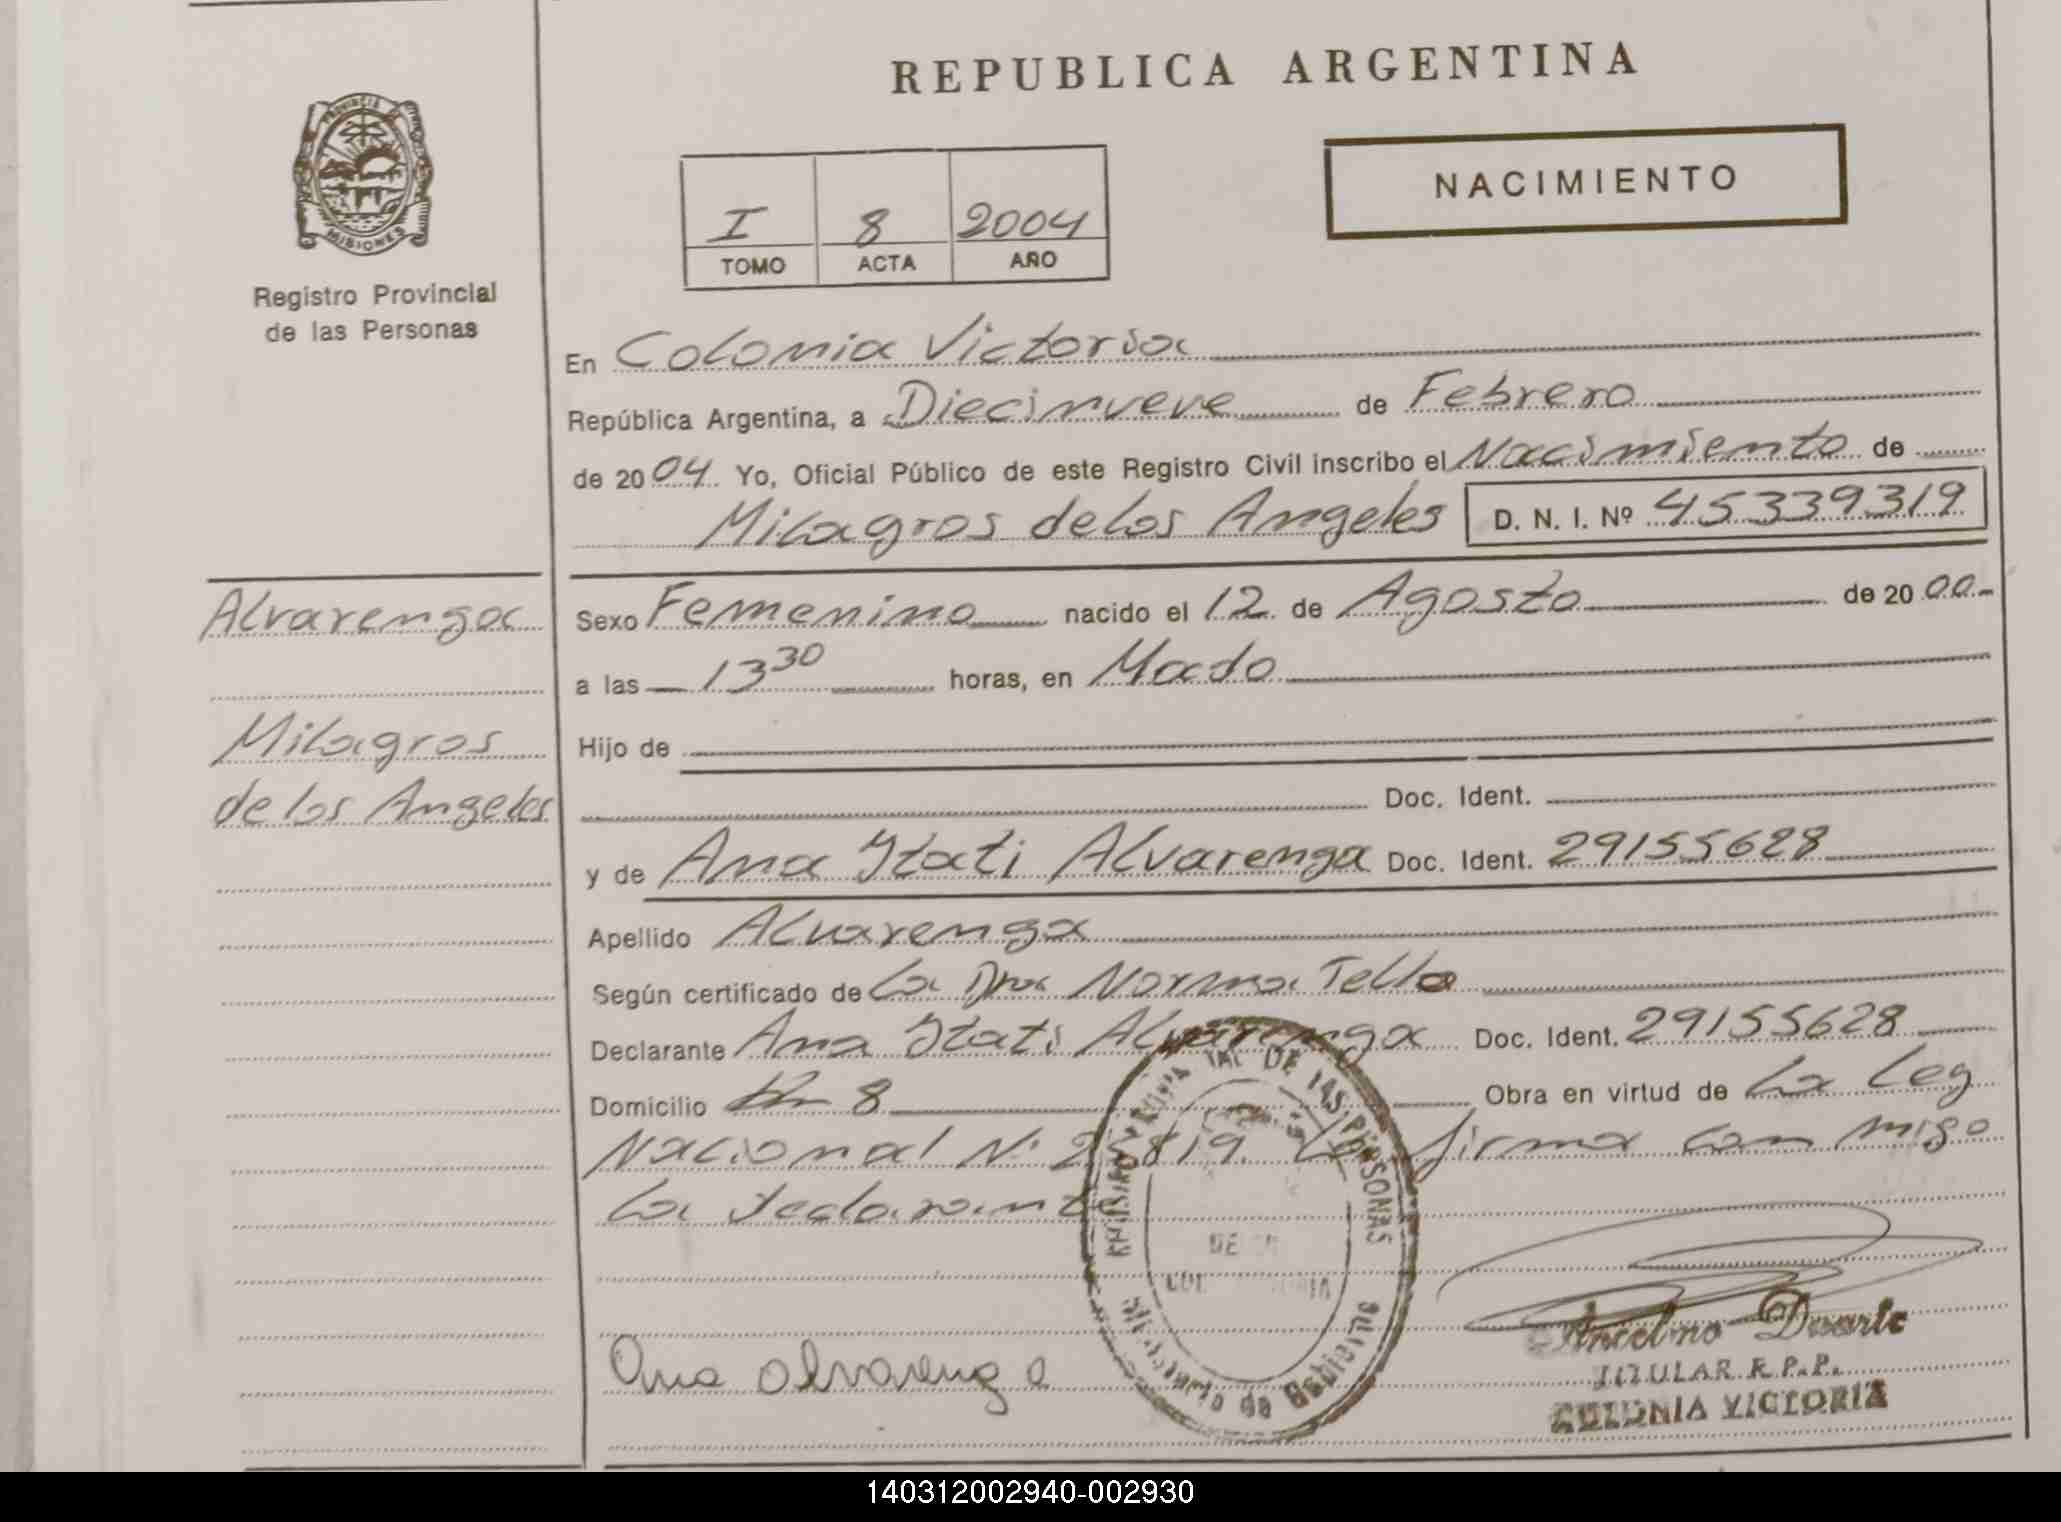 REPUBLICA ARGENTINA
PROVINCIA DE
MISIONES
Registro Provincial
de las Personas
I 8 2004
TOMO ACTA AÑO
NACIMIENTO
En Colonia Victoria
República Argentina, a Diecinueve de Febrero
de 2004 Yo, Oficial Público de este Registro Civil inscribo el Nacimiento de
Milagros de los Angeles D. N. I. Nº 45339319
Alvarenga
Milagros
de los Angeles
Sexo Femenino nacido el 12 de Agosto de 2000
a las 13 30 horas, en Mado
Hijo de
Doc. Ident.
y de Ana Itati Alvarenga Doc. Ident. 29155628
Apellido Alvarenga
Según certificado de La Dra Norma Tello
Declarante Ana Itati Alvarenga Doc. Ident. 29155628
Domicilio Km 8 Obra en virtud de La Ley
Nacional Nº 2 819. firma con migo
La declarante
TAL DE LAS PERSONAS
DE
Ana alvarenga
Ancelmo Duarte
TITULAR R.P.P.
COLONIA VICTORIA
140312002940-002930